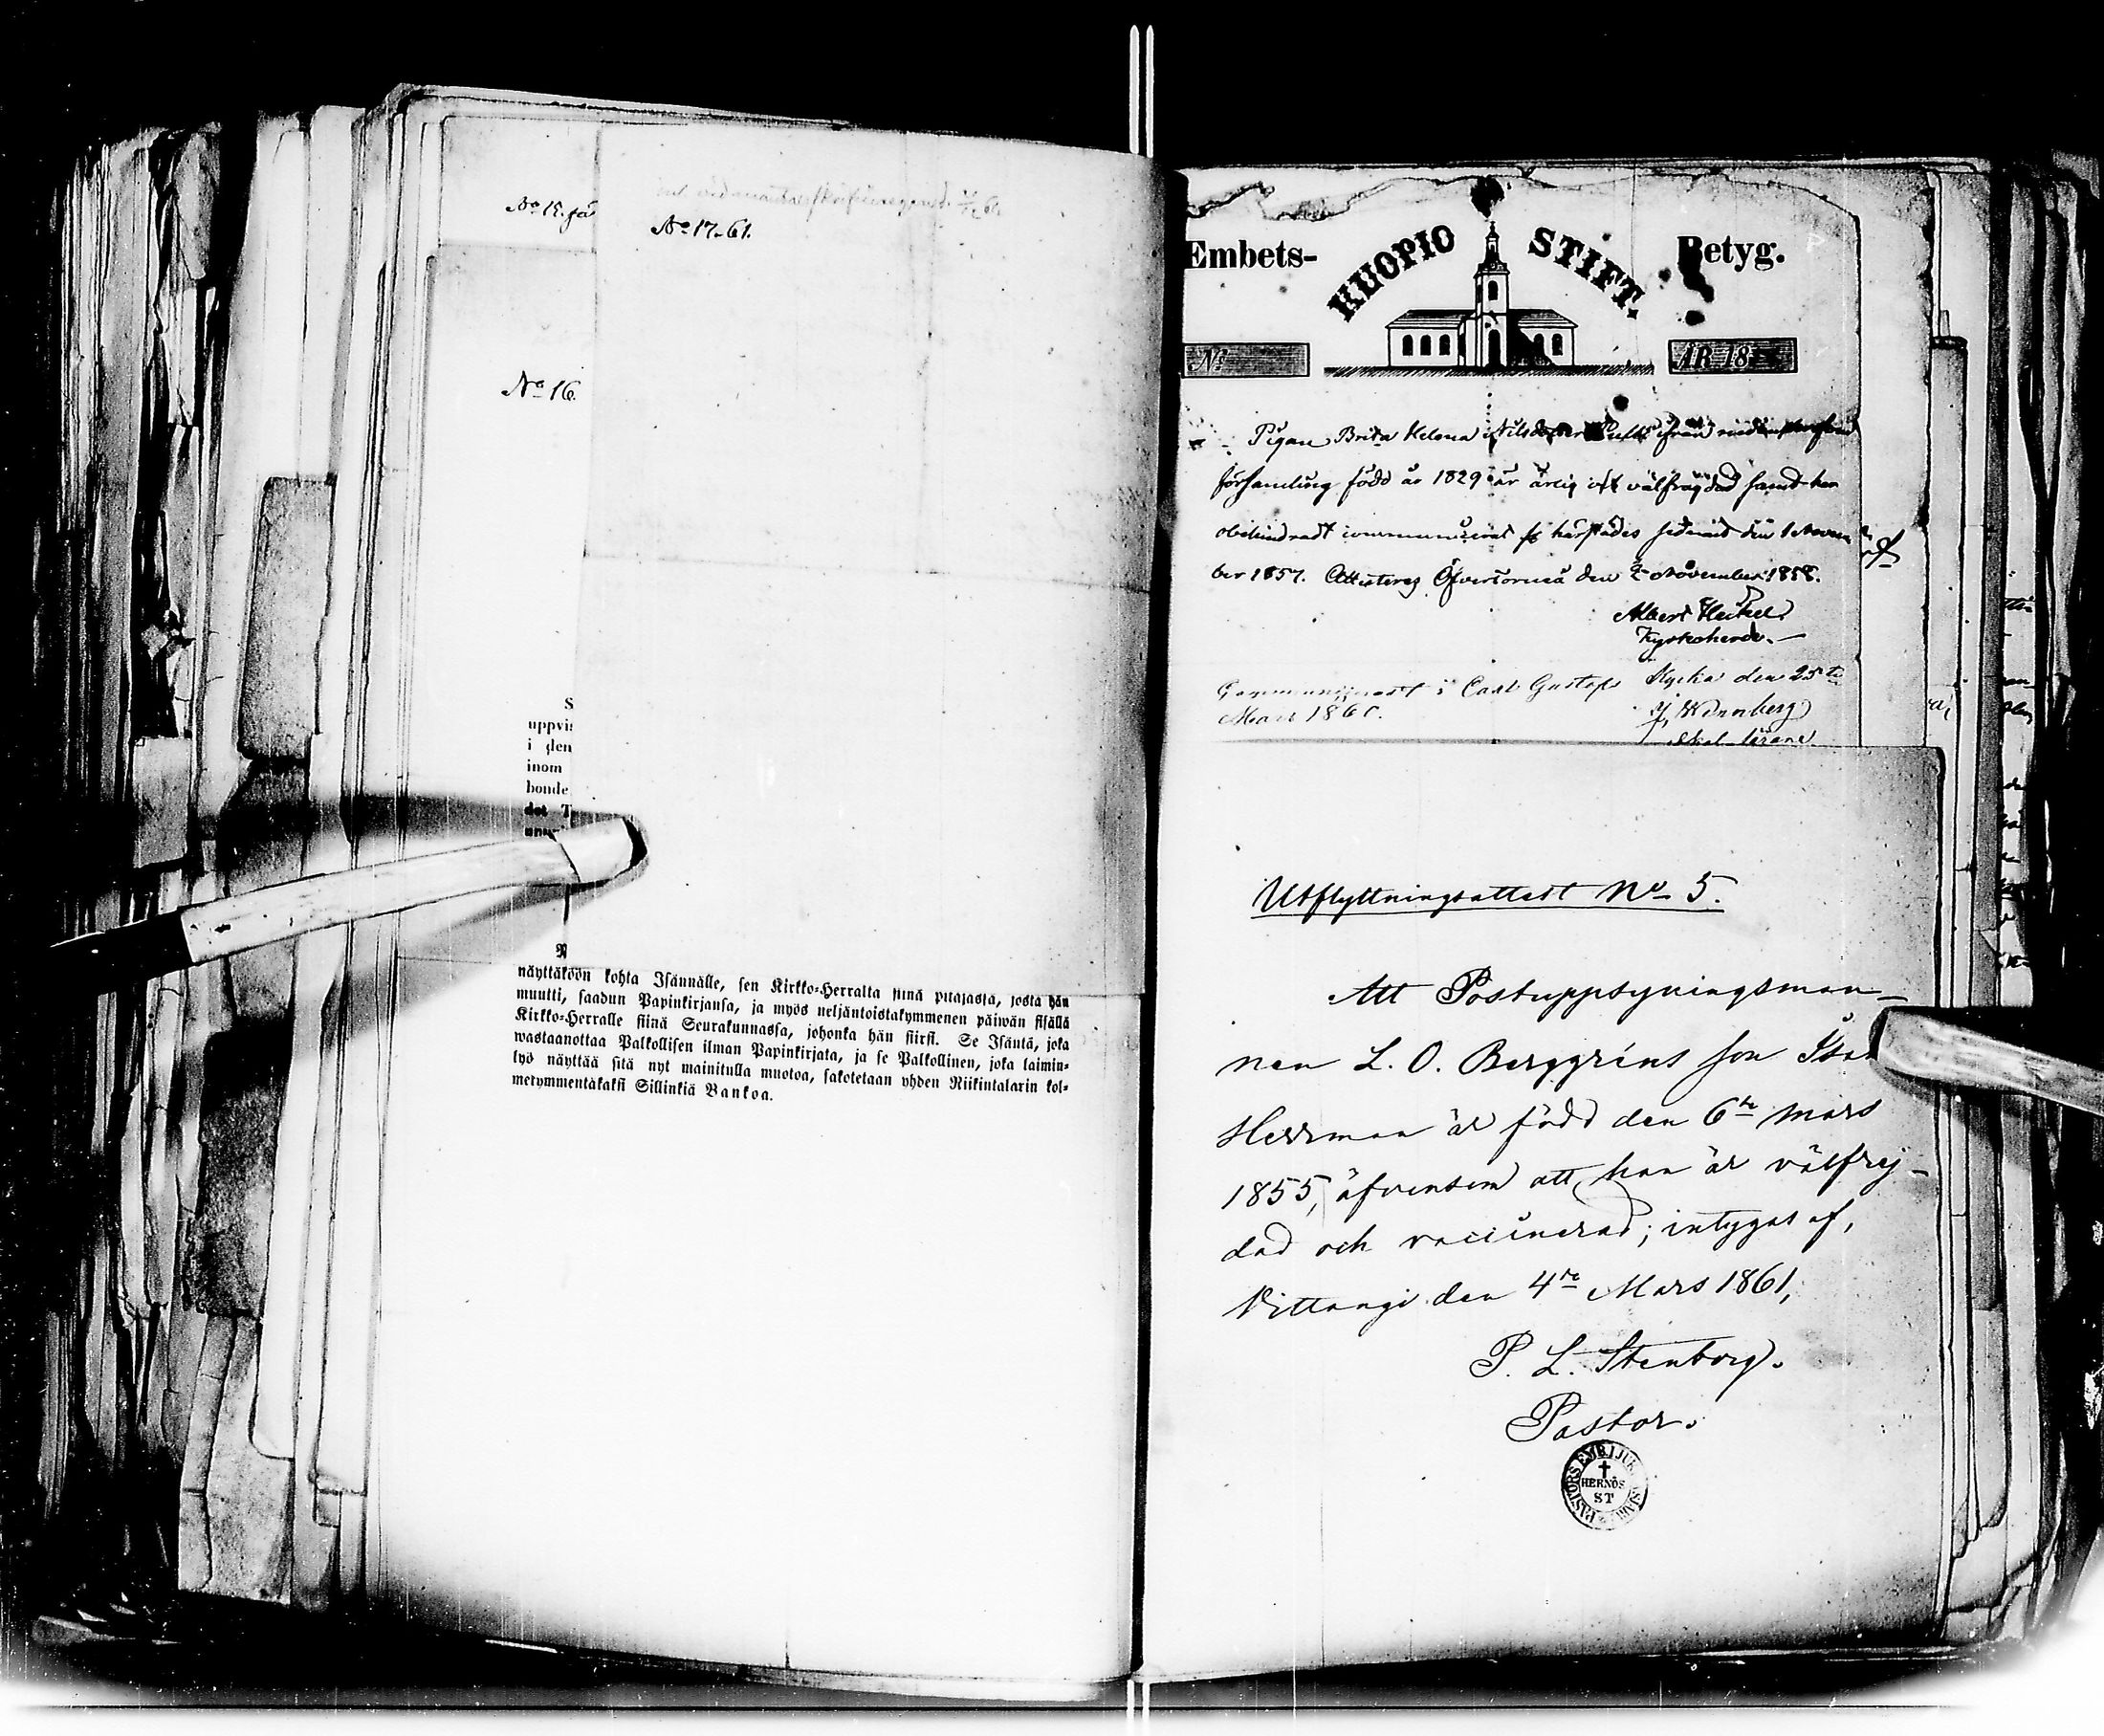 No 15.
No 17.61.
No 16.
S
uppvi
i den
inom
bonde
det T
N
näyttäköön kohta Isännälle, sen Kirkko-Herralta siinä pitäjässä, josta hän
muutti, saadun Papinkirjansa, ja myös neljäntoistakymmenen päiwän sisällä
Kirkko-Herralle siinä Seurakunnassa, johonka hän siirsi. Se Isäntä, joka
wastaanottaa Palkollisen ilman Papinkirjata, ja se Palkollinen, joka laimin-
lyö näyttää sitä nyt mainitulla muotoa, sakotetaan yhden Riikintalarin kol-
metymmentäkaksi Sillinkiä Bankoa.
Embets- KUOPIO STIFT. Betyg.
No ÅR 18
Pigan Brita Helena Nilsdotter ifrån
församling född år 1829 är ärlig och välfrägdad samt har
obehindradt communicerat härstädes sednast den 1 Novem
ber 1857. Attesteras Öfvertorneå den 2 November 1858.
Albert Heikel
Kyrkoherde.
i Carl Gustafs Kyrka den 25te
Mars 1860.
Wennberg
Utflyttningsattest No 5.
Att Postuppsyningsman-
nen L. O. Berggréns son
Herrman är född den 6te Mars
1855, äfvensom att han är välfrej-
dad och vaccinerad; intygas af,
Vittangi den 4de Mars 1861,
P. L. Stenborg.
Pastor.
PASTORS EMB I JUKASJARVI
HERNÖS
ST